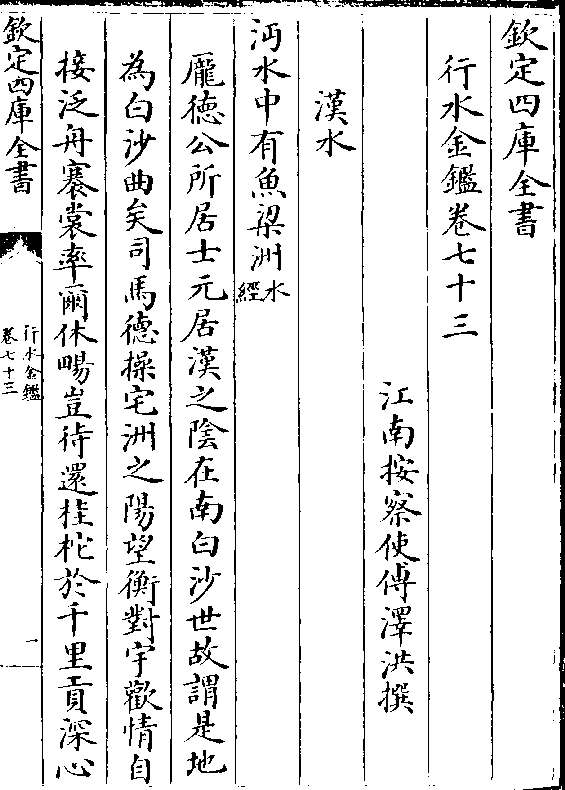 欽定四庫全書
行水金鑑卷七十三
江南按察使傅澤洪撰
漢水
沔水中有魚梁洲水經
龐德公所居士元居漢之隂在南白沙世故謂是地
為白沙曲矣司馬德操宅洲之陽望衡對宇歡情自
接泛舟褰裳率爾休暢豈待還桂柁於千里貢深心
欽定四庫全書
行水金鑑
卷七十三
一